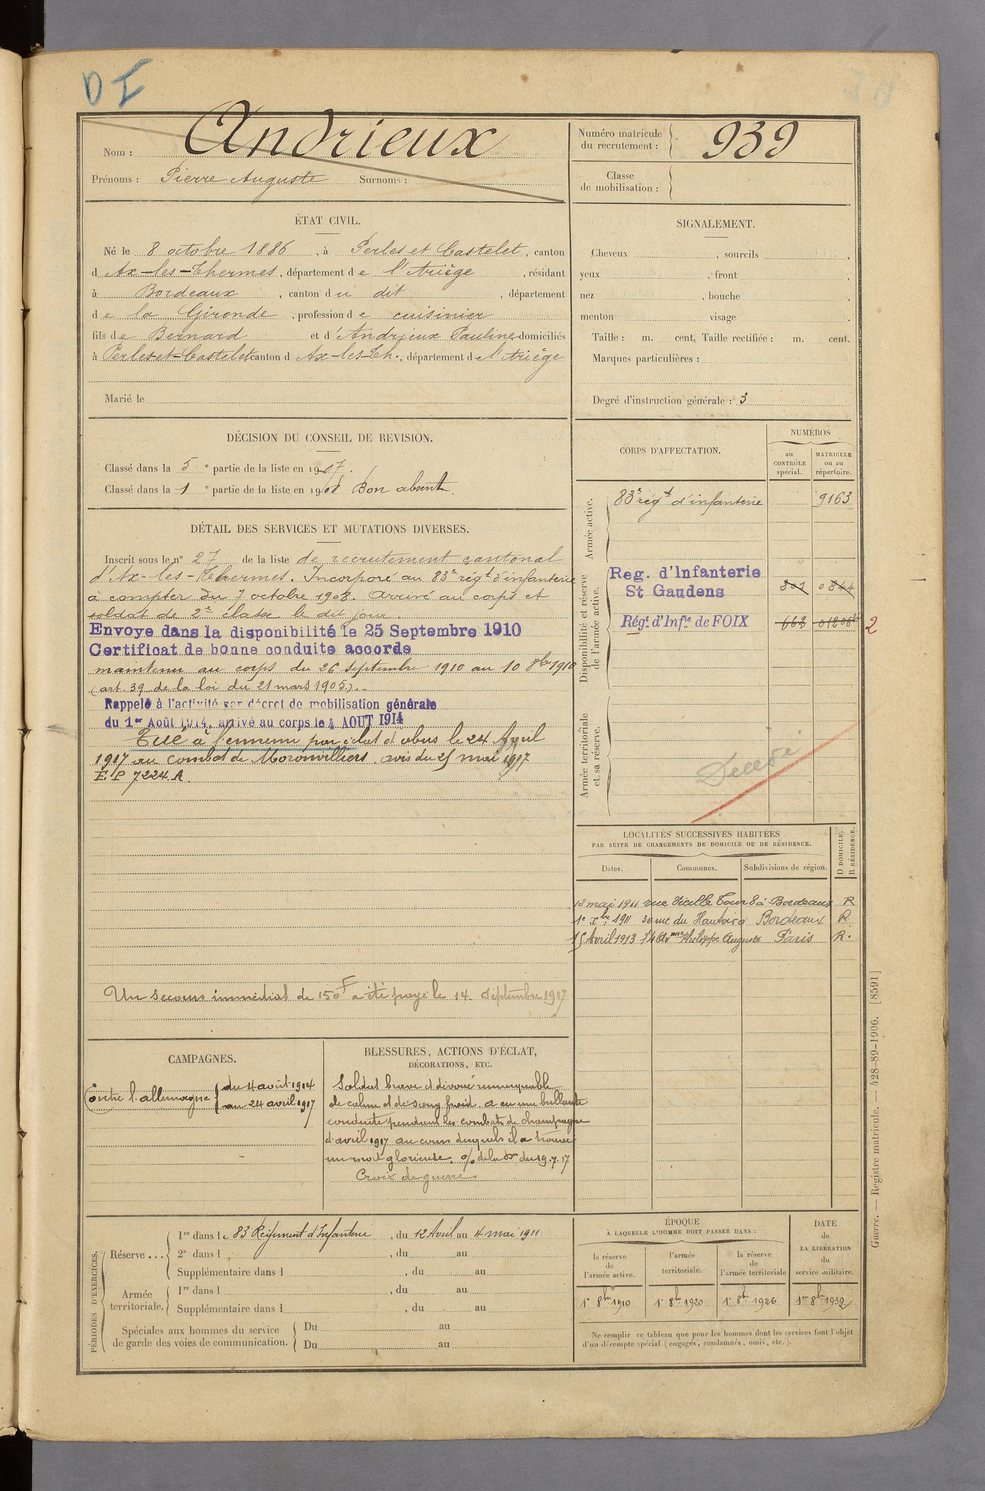 DI
Nom : Andrieux
Prénoms : Pierre Auguste Surnoms :
Numéro matricule du recrutement : 939
Classe de mobilisation :
ÉTAT CIVIL.
Né le 8 octobre 1886, à Perles et Castelet, canton
d'Ax-les-Thermes, département de l'Ariège, résidant
à Bordeaux, canton du dit, département
de la Gironde, profession de cuisinier
fils de Bernard et d'Andrieux Pauline domiciliés
à Perles-et-Castelet canton d'Ax-les-Th., département de l'Ariège
Marié le
SIGNALEMENT.
Cheveux , sourcils ,
yeux , front
nez , bouche ,
menton visage .
Taille : m. cent, Taille rectifiée : m. cent.
Marques particulières :
Degré d'instruction générale : 3
DÉCISION DU CONSEIL DE REVISION.
Classé dans la 5e partie de la liste en 1907.
Classé dans la 1e partie de la liste en 1908 Bon absent.
DÉTAIL DES SERVICES ET MUTATIONS DIVERSES.
Inscrit sous le n° 27 de la liste de recrutement cantonal
d'Ax-les-Thermes. Incorporé au 83e régt d'infanterie
à compter du 7 octobre 1908. Arrivé au corps et
soldat de 2e classe le dit jour.
Envoye dans la disponibilité le 25 Septembre 1910
Certificat de bonne conduite accorde
maintenu au corps du 26 septembre 1910 au 10 8bre 1910
(art 39 de la loi du 21 mars 1905).
Rappelé à l'activité par décret de mobilisation générale
du 1er Août 1914, arrivé au corps le 4 AOUT 1914
Tué à l'ennemi par éclat d'obus le 24 Avril
1917 au combat de Moronvilliers avis du 25 mai 1917
E.P 7224 A.
Un secours immédiat de 150F a été payé le 14 Septembre 1917
CORPS D'AFFECTATION.
NUMÉROS
au CONTRÔLE spécial.
MATRICULE ou au répertoire.
Armée active.
83e régt d'infanterie 9163
Disponibilité et réserve de l'armée active.
Reg. d'Infanterie
St Gaudens 0844
Régt d'Infie de FOIX 668 2
Armée territoriale et sa réserve.
Décédé
LOCALITÉS SUCCESSIVES HABITÉES
PAR SUITE DE CHANGEMENTS DE DOMICILE OU DE RÉSIDENCE.
D DOMICILE. R RÉSIDENCE.
Dates. Communes. Subdivisions de région.
13 mai 1911 rue Vieille Tour 8 à Bordeaux R
1e Xbre 1911 rue du Bordeaux R.
15 Avril 1913 Philippe Auguste Paris R.
CAMPAGNES.
Contre l'allemagne du 4 août 1914
au 24 avril 1917
BLESSURES, ACTIONS D'ÉCLAT,
DÉCORATIONS, ETC.
Soldat brave et dévoué remarquable
de calme et de sang froid. a eu une brillante
conduite pendant les combats de champagne
d'avril 1917 au cours desquels il a trouvé
une mort glorieuse. o/ de la Don du 19.7.17
Croix de guerre
PÉRIODES D'EXERCICES.
Réserve ... 1re dans le 83 Régiment d'Infanterie, du 12 Avril au 4 mai 1911
2e dans l , du au
Supplémentaire dans l , du au
Armée territoriale. 1re dans l , du au
Supplémentaire dans l , du au
Spéciales aux hommes du service de garde des voies de communication. Du au
Du au
ÉPOQUE
À LAQUELLE L'HOMME DOIT PASSER DANS :
la réserve de l'armée active.
l'armée territoriale.
la réserve de l'armée territoriale
DATE DE LA LIBÉRATION du service militaire.
1er 8bre 1910 1er 8bre 1920 1er 8bre 1926 1er 8bre 1932
Ne remplir ce tableau que pour les hommes dont les services font l'objet
d'un décompte spécial (engagés, condamnés, omis, etc.).
Guerre. — Registre matricule. — 428-89-1906. [8591]